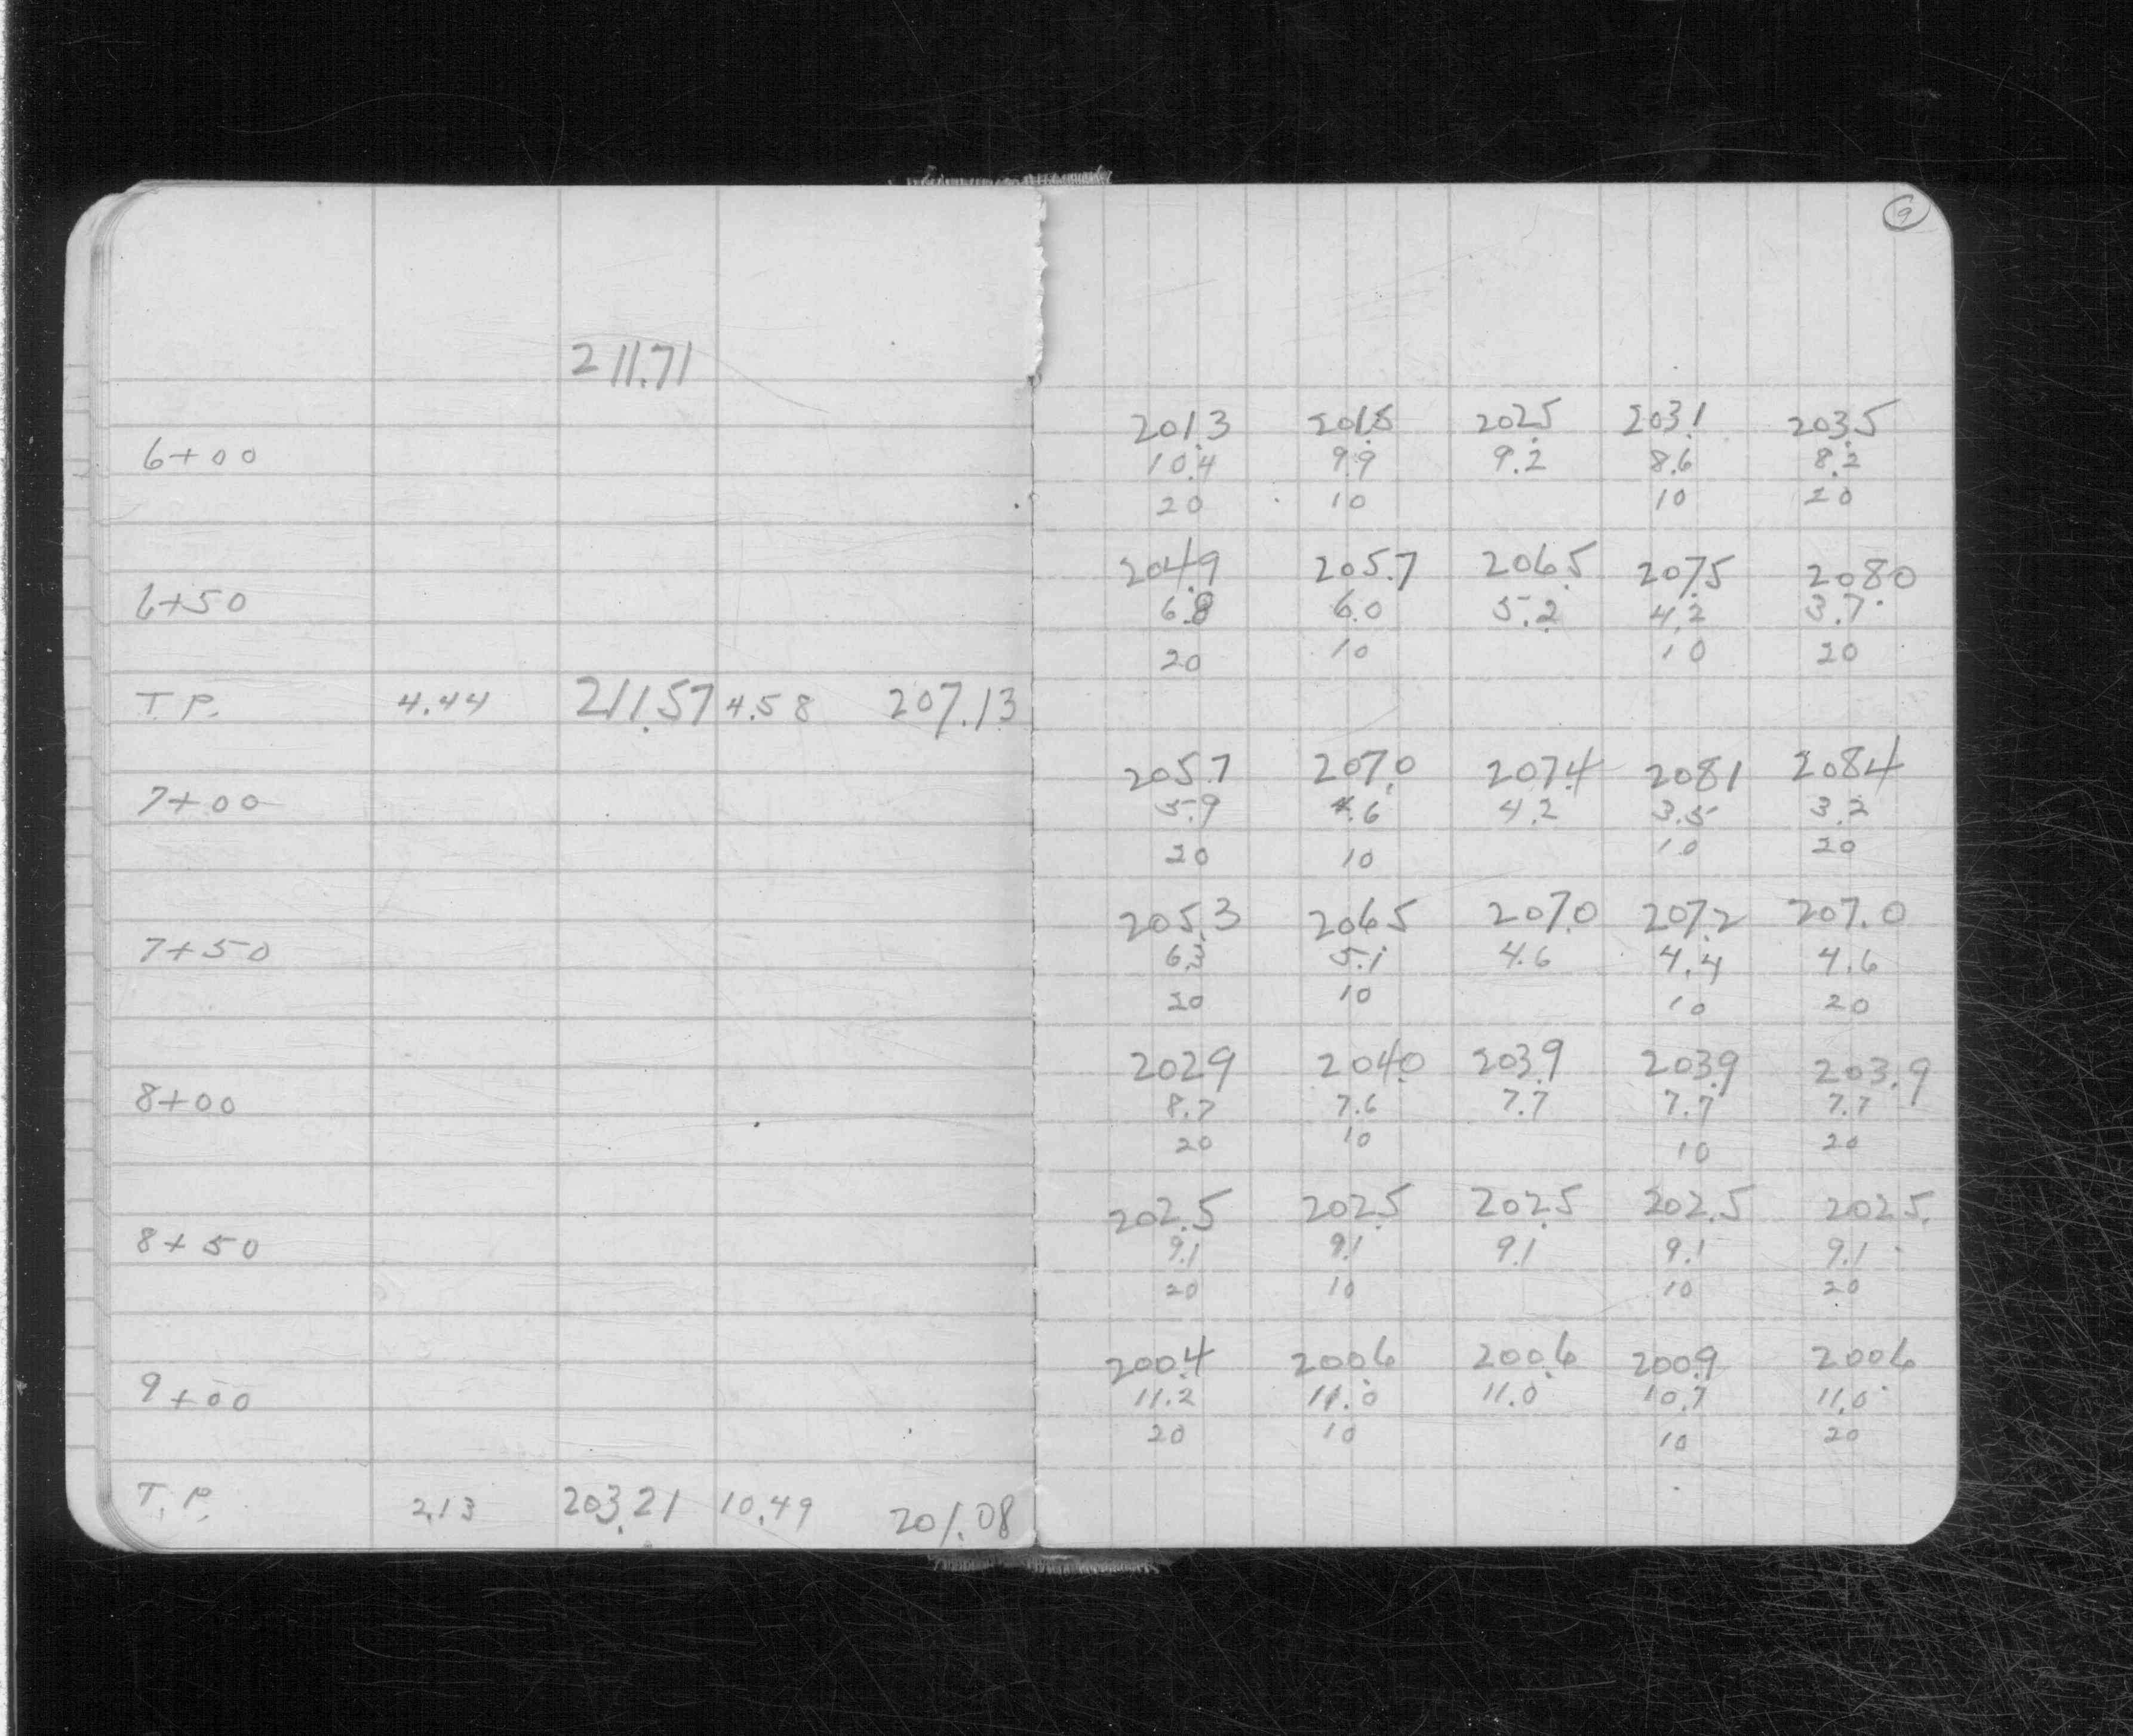 9
211.71
201.3 201.8 202.5 203.1 203.5
6+00 10.4 9.9 9.2 8.6 8.2
20 10 10 20
204.9 205.7 206.5 207.5 208.0
6+50 6.8 6.0 5.2 4.2 3.7
20 10 10 20
T.P. 4.44 211.57 4.58 207.13
205.7 207.0 207.4 208.1 208.4
7+00 5.9 4.6 4.2 3.5 3.2
20 10 10 20
205.3 206.5 207.0 207.2 207.0
7+50 6.3 5.1 4.6 4.4 4.6
20 10 10 20
202.9 204.0 203.9 203.9 203.9
8+00 8.7 7.6 7.7 7.7 7.7
20 10 10 20
202.5 202.5 202.5 202.5 202.5
8+50 9.1 9.1 9.1 9.1 9.1
20 10 10 20
200.4 200.6 200.6 200.9 200.6
9+00 11.2 11.0 11.0 10.7 11.0
20 10 10 20
T.P. 2.13 203.21 10.49 201.08